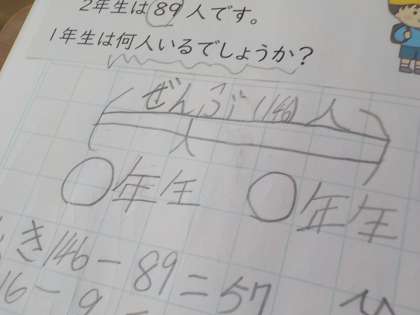 2年生は89人です。
1年生は何人いるでしょうか?
ぜんぶ(146)人
○年生 ○年生
き146-89=57
16-9=